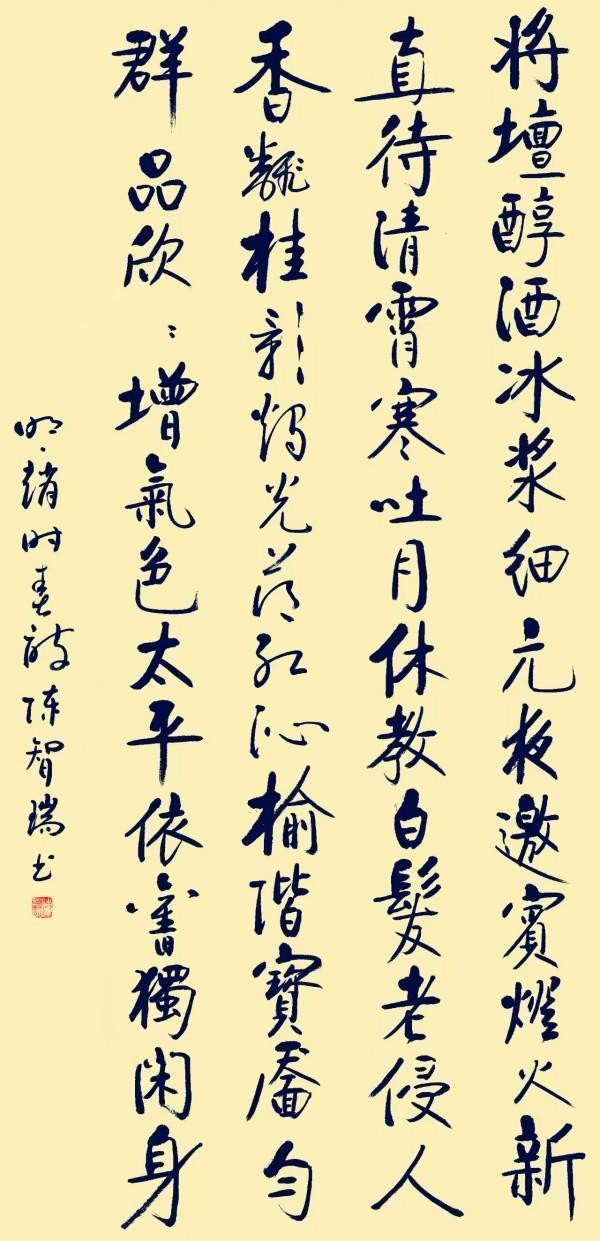 将壇醇酒冰漿細元夜邀賓燈火新
直待清霄寒吐月休教白髮老侵人
香飄桂影燭光紅沁榆階寶靨勻
群品欣々增氣色太平依舊獨閑身
明趙时春詩陳智瑞书